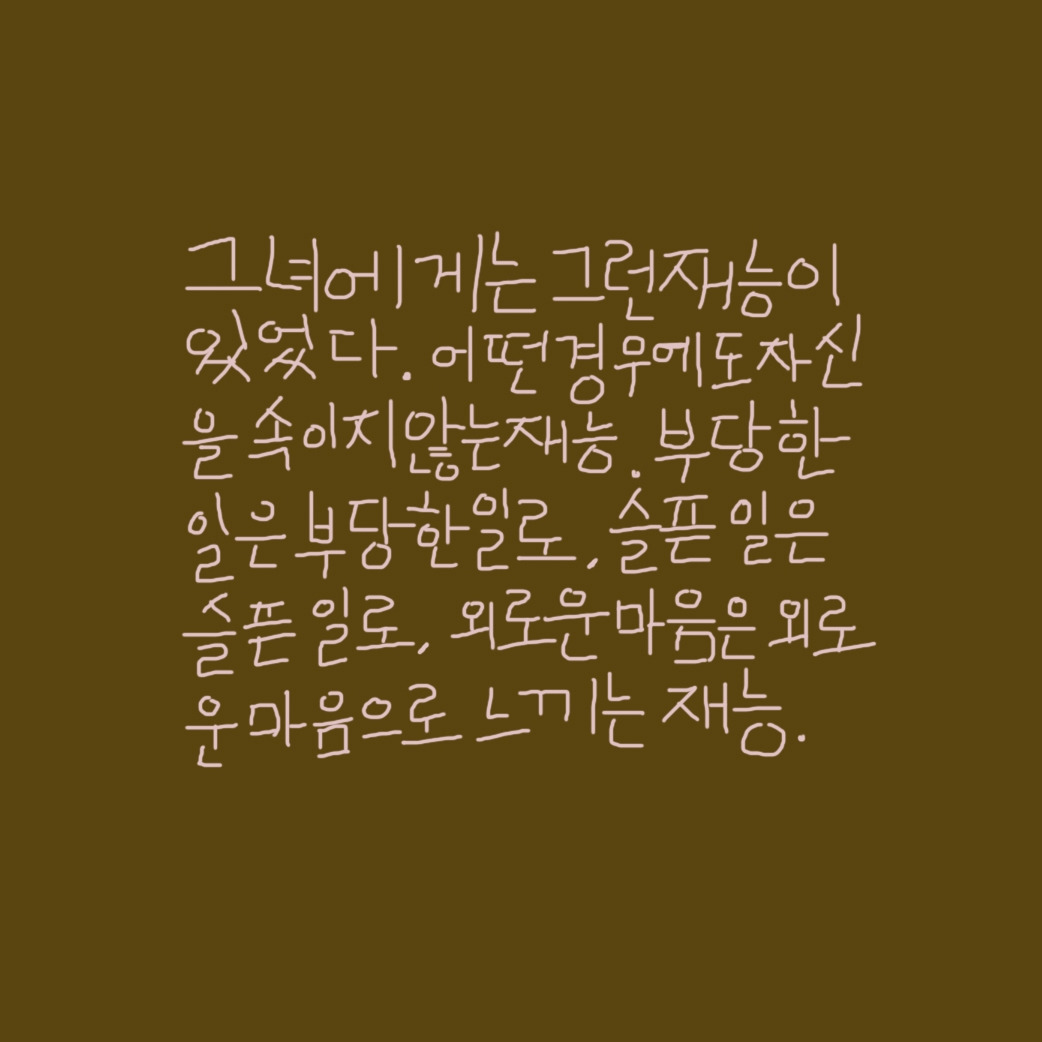 그녀에게는 그런 재능이
있었다. 어떤 경우에도 자신
을 속이지 않는 재능. 부당한
일은 부당한 일로, 슬픈 일은
슬픈 일로, 외로운 마음은 외로
운 마음으로 느끼는 재능.